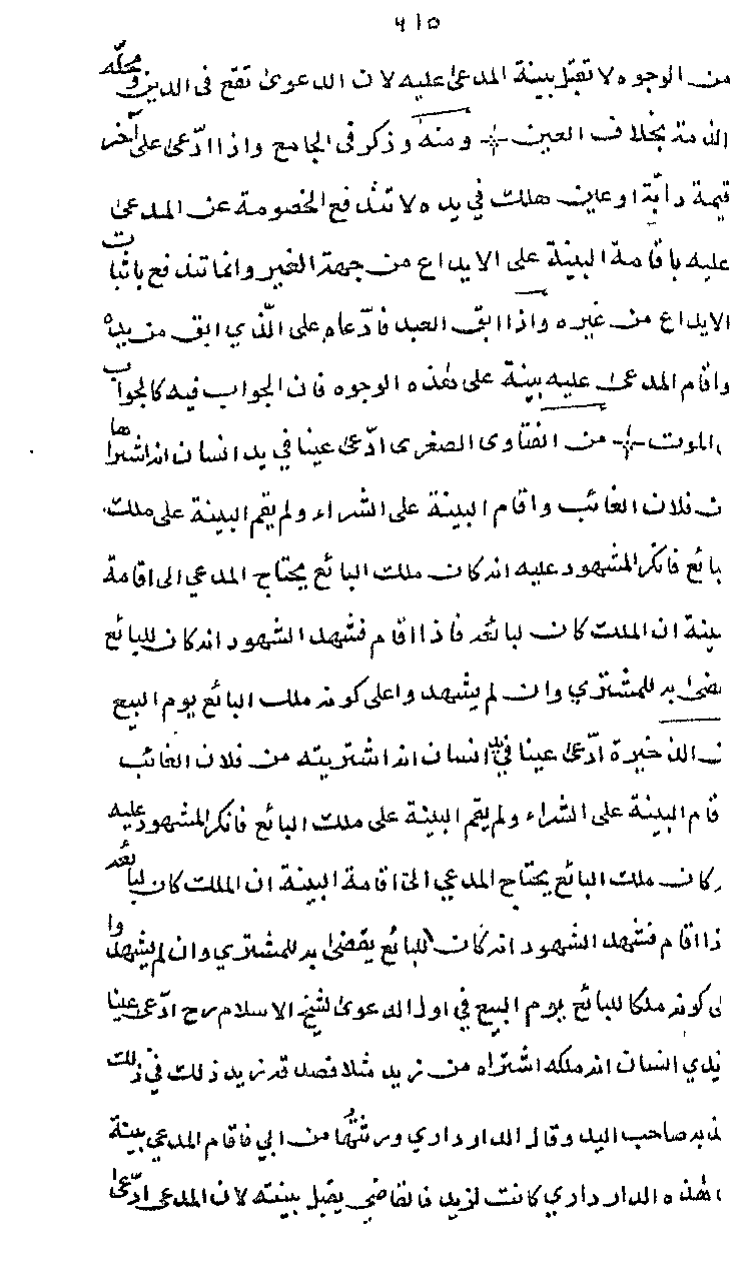 ٦١٥
من الوجوه لا تقبل بينة المدعى عليه لان الدعوى تقع فى الدين ومحله
الذمة بخلاف العين ومنه وذكر فى الجامع واذا ادّعى على آخر
قيمة دابّة او عين هلك في يده لا تندفع الخصومة عن المدعى
عليه باقامة البينة على الايداع من جهة الغير وانما تندفع باثبات
الايداع من غيره واذا ابق العبد فادّعاه على الّذي ابق من يده
واقام المدعى عليه بينة على هذه الوجوه فان الجواب فيه كالجواب
الموت من الفتاوى الصغرى ادّعى عينا في يد انسان انه اشتراها
ن فلان الغائب واقام البينة على الشراء ولم يقم البينة على ملك
بائع فانكر المشهود عليه انه كان ملك البائع يحتاج المدعي الى اقامة
بينة ان الملك كان لبائعه فاذا اقام فشهد الشهود انه كان للبائع
يقضى به للمشتري وان لم يشهدوا على كونه ملك البائع يوم البيع
ن الذخيرة ادّعى عينا في يد انسان انه اشتريته من فلان الغائب
قام البينة على الشراء ولم يقم البينة على ملك البائع فانكر المشهود عليه
كان ملك البائع يحتاج المدعي الى اقامة البينة ان الملك كان لبائعه
ذا اقام فشهد الشهود انه كان للبائع يقضى به للمشتري وان لم يشهدوا
لى كونه ملكا للبائع يوم البيع في اول الدعوى لشيخ الاسلام رح ادّعى عينا
في يدي انسان انه ملكه اشتراه من زيد مثلا فصدقه زيد ذلك في ذلك
صاحب اليد وقال الدار داري ورثتها من ابي فاقام المدعي بينة
هذه الدار داري كانت لزيد فالقاضي يقبل بينته لان المدعى ادّعى